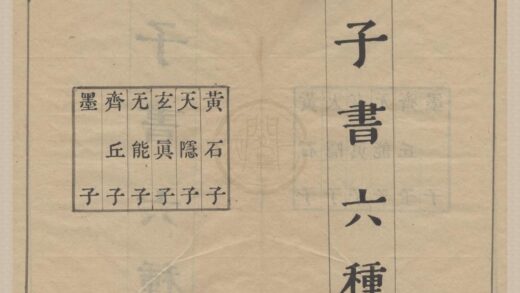 子書六種
黃石子
天隱子
玄眞子
无能子
齊丘子
墨子